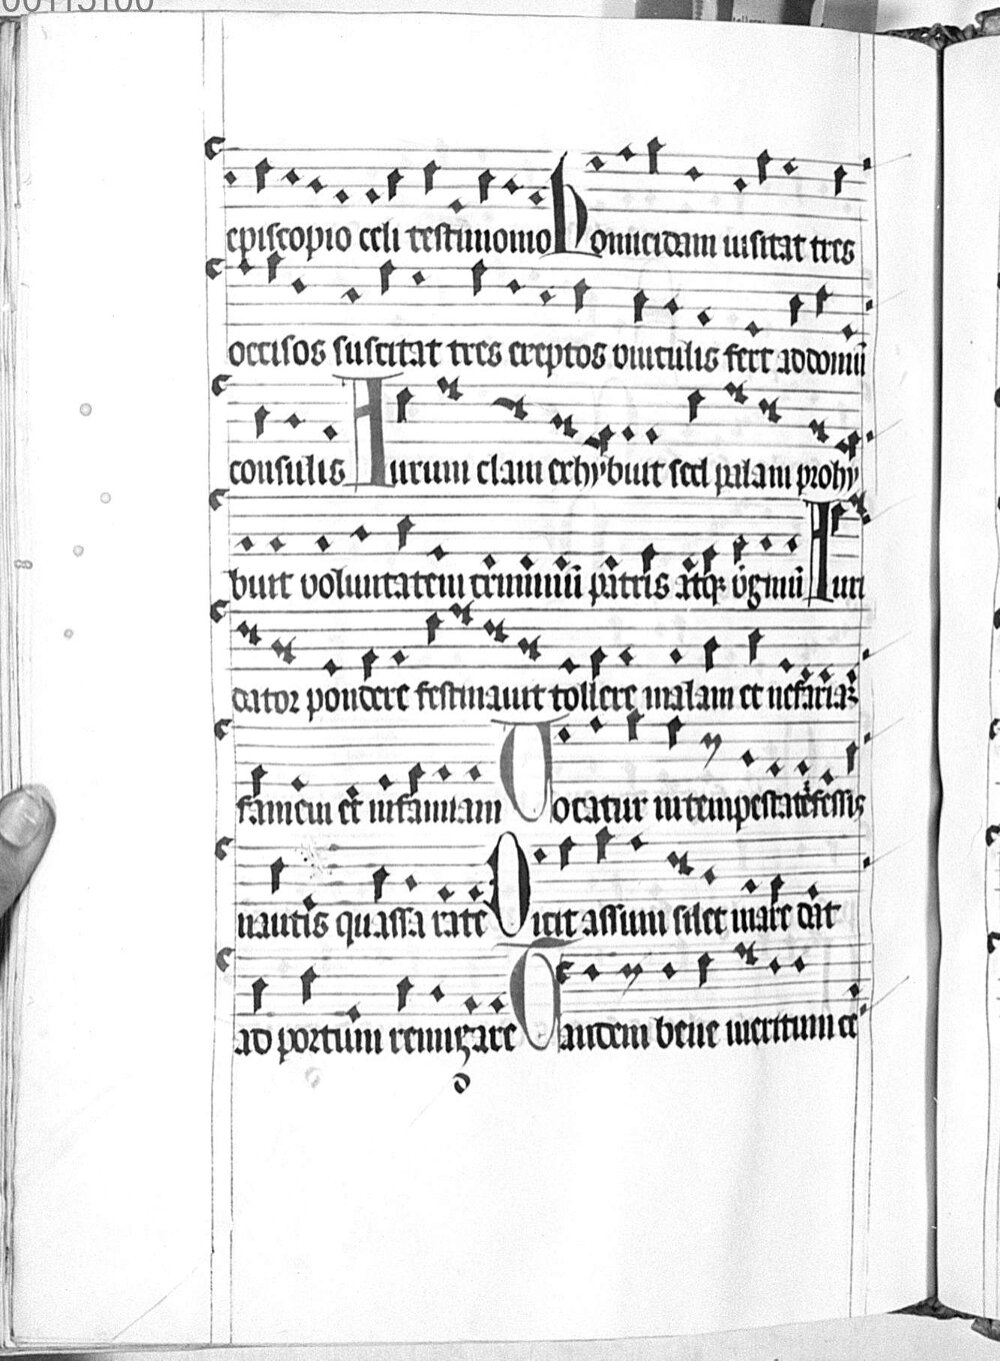 00113100
episcopio celi testimonio Homicidam uisitat tres
occisos suscitat tres ereptos vinculis fert ad domū
consulis Aurum clam exhybuit sed palam prohy
buit voluntatem criminū patris atq virginū Auri
dator pondere festinauit tollere malam et nefariaʒ
famem et infamiam Vocatur in tempestate fessis
nautis quassa rate Dicit assum silet mare dat
ad portum remigare Tandem bene meritum ce